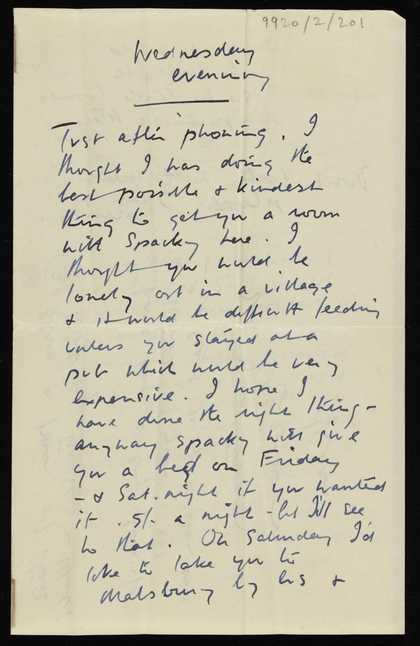 9920/2/201
Wednesday
evening
Just after phoning. I
thought I was doing the
best possible & kindest
thing to get you a room
with Spacky here. I
thought you would be
lonely out in a village
& it would be difficult feeding
unless you stayed at a
pub which would be very
expensive. I hope I
have done the right thing -
anyway Spacky will give
you a bed on Friday
- & Sat. night if you wanted
it. 5/- a night - but I'll see
to that. On Saturday I'd
like to take you to
Malsbury by bus &